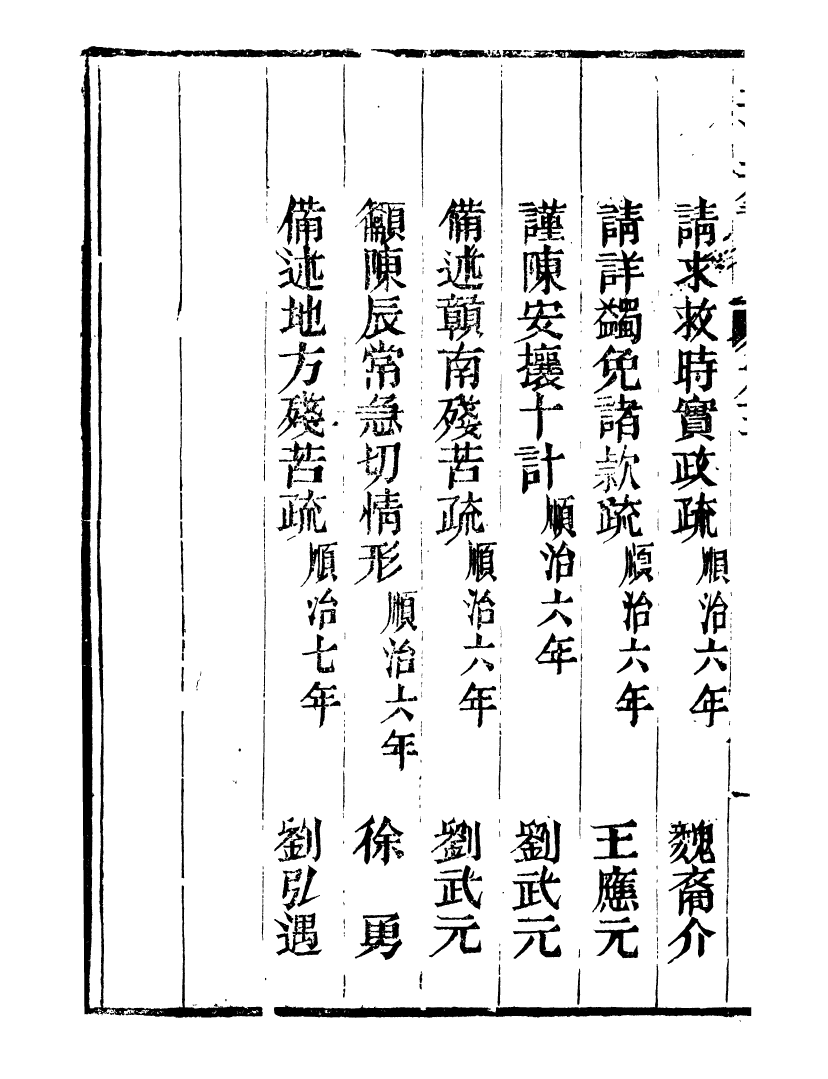 請求救時實政疏順治六年　魏裔介
請詳蠲免諸款疏順治六年　王應元
謹陳安攘十計順治六年　劉武元
備述贛南殘苦疏順治六年　劉武元
籲陳辰常急切情形順治六年　徐勇
備述地方殘苦疏順治七年　劉弘遇